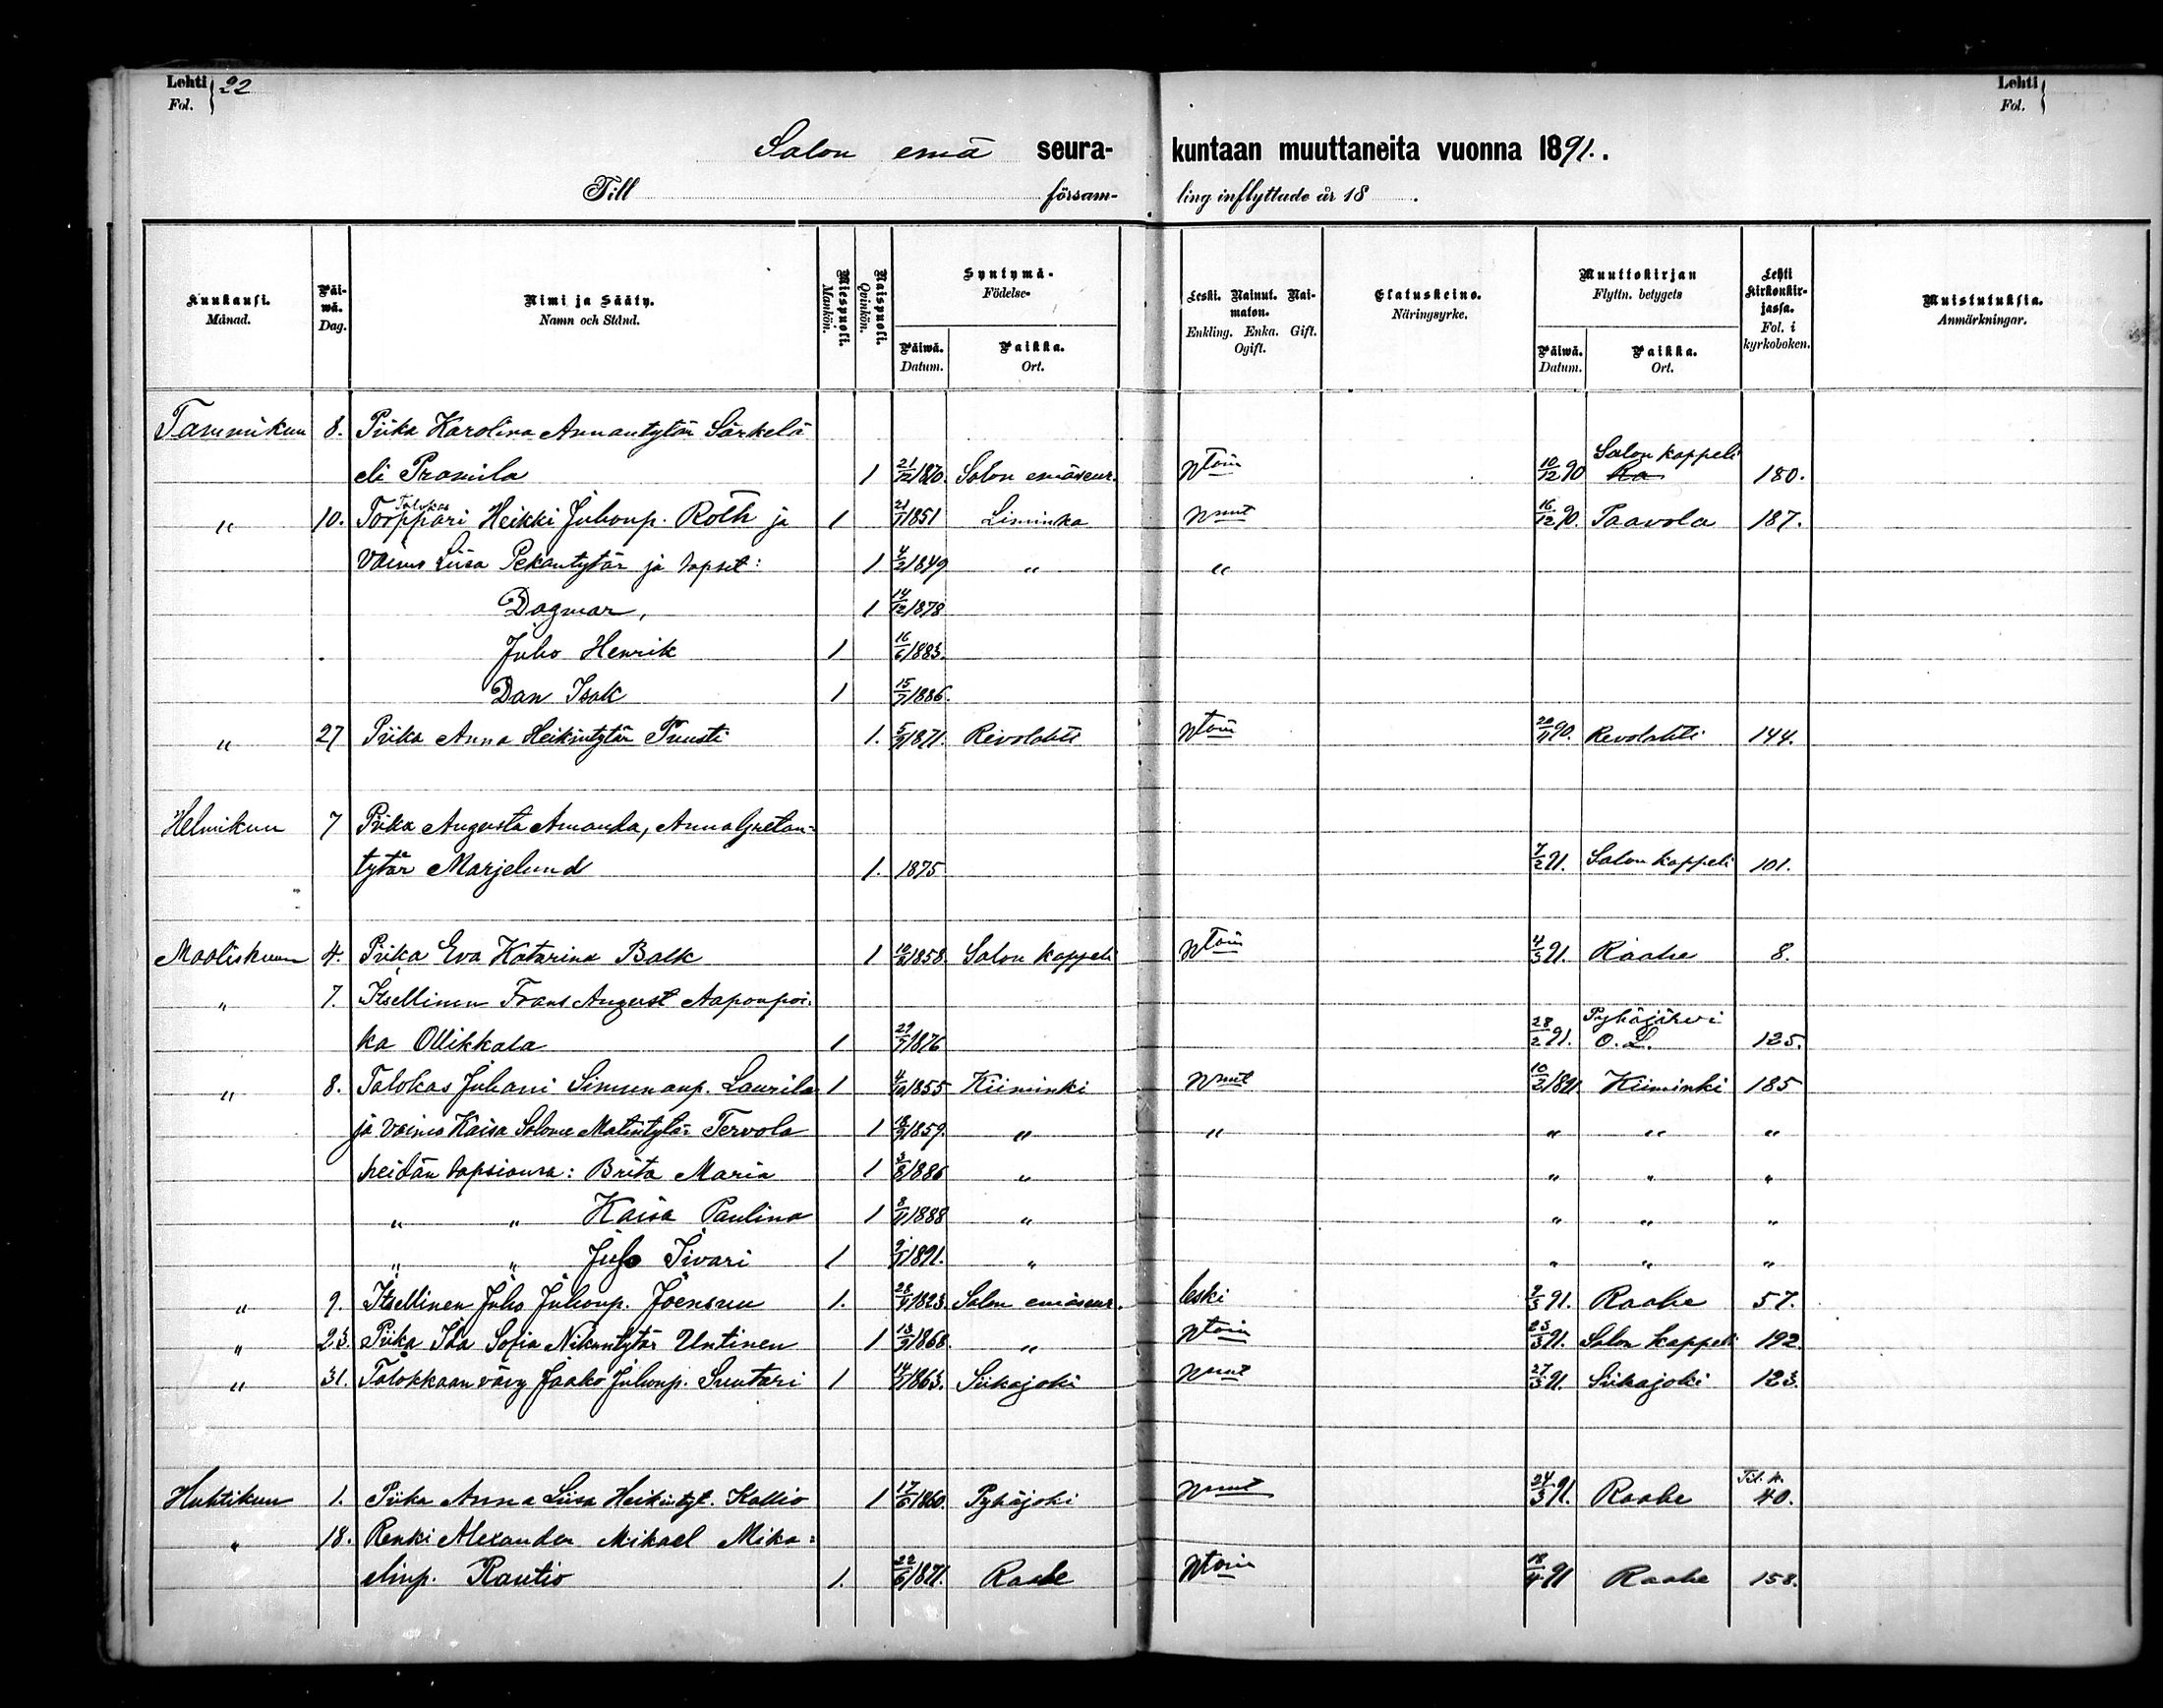 Lehti 22 Lehti
Fol. Fol.
Salon emä seura- kuntaan muuttaneita vuonna 1891.
Till församling inflyttade år 18 .
Kuukausi. Månad. Päiwä. Dag. Nimi ja Sääty. Namn och Stånd. Miespuoli. Mankön. Naispuoli. Qvinkön. Syntymä- Födelse- Päiwä. Datum. Paikka. Ort. Leski. Nainut. Naimaton. Enkling. Enka. Gift. Ogift. Elatuskeino. Näringsyrke. Muuttokirjan Flyttn. betygets Päiwä. Datum. Paikka. Ort. Lehti Kirkonkirjassa. Fol. i kyrkoboken. Muistutuksia. Anmärkningar.
Tammikuu 8. Piika Karolina Annantytär Särkelä
eli Pramila 1 21/12 1870. Salon emäseur. Ntoin 10/12 90 Salon kappeli 180.
" 10. Torppari Talokas Heikki Juhonp. Roth ja 1 21/1 1851 Liminka Nnut 16/12 90. Paavola 187.
Vaimo Liisa Pekantytär ja lapset: 1 4/2 1849 " "
Dagmar, 1 14/12 1878
Juho Henrik 1 16/6 1883.
Dan Isak 1 15/7 1886.
" 27 Piika Anna Heikintytär Tuusti 1. 5/9 1871. Revolahti Ntoin 20/11 90. Revolahti 144.
Helmikuu 7 Piika Augusta Amanda, Anna Gretan-
tytär Marjelund 1. 1875 7/2 91. Salon kappeli 101.
Maaliskuu 4. Piika Eva Katarina Balk 1 1858. Salon kappeli Ntoin 4/3 91. Raahe 8.
" 7. Itsellinen Frans August Aaponpoi-
ka Ollikkala 1 29/7 1876 28/2 91. Pyhäjärvi O. L. 125.
" 8. Talokas Juhani Simunanp. Laurila 1 4/10 1855 Kiiminki Nnut 10/2 1891. Kiiminki 185
ja vaimo Kaisa Salome Matintytär Tervola 1 1859. " " " " "
heidän lapsiansa: Brita Maria 1 3/8 1886 " " " "
" " Kaisa Paulina 1 8/11 1888 " " " "
" " Juho Iivari 1 1891. " " " "
" 9. Itsellinen Juho Juhonp. Joensuu 1. 1823. Salon emäseur. leski 9/3 91. Raahe 57.
" 23. Piika Ida Sofia Nikuntytär Untinen 1 13/9 1868. " Ntoin 23/3 91. Salon kappeli 192.
" 31. Talokkaan vävy Jaako Juhonp. Suutari 1 14/1 1863. Siikajoki Nnut 27/3 91. Siikajoki 123.
Huhtikuu 1. Piika Anna Liisa Heikintyt. Kallio 1 17/6 1860. Pyhäjoki Nnut 24/3 91. Raahe Til. k. 40.
" 18. Renki Alexander Mikael Mika-
elinp. Rautio 1. 22/6 1871. Raahe Ntoin 18/4 91 Raahe 158.